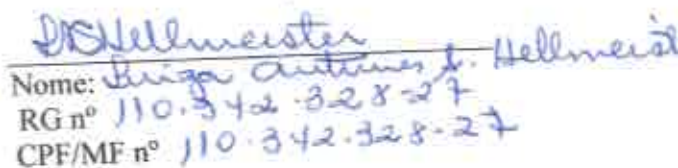 Hellmeister
Nome: Antunes S. Hellmeist
RG nº 110.342.328-27
CPF/MF nº 110.342.328-27